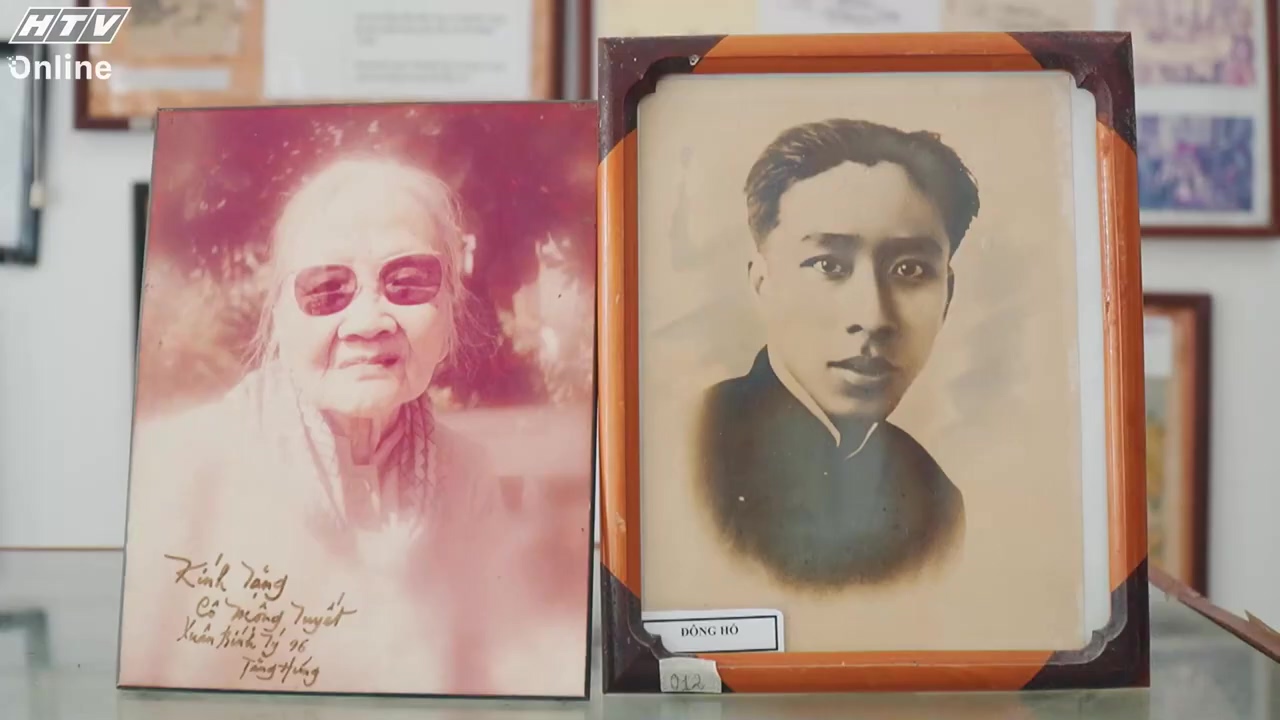 HTV
Online
Kính Tặng
Cô Mộng Tuyết
Xuân Bính Tý 96
Tăng Hưng
ĐÔNG HỒ
012